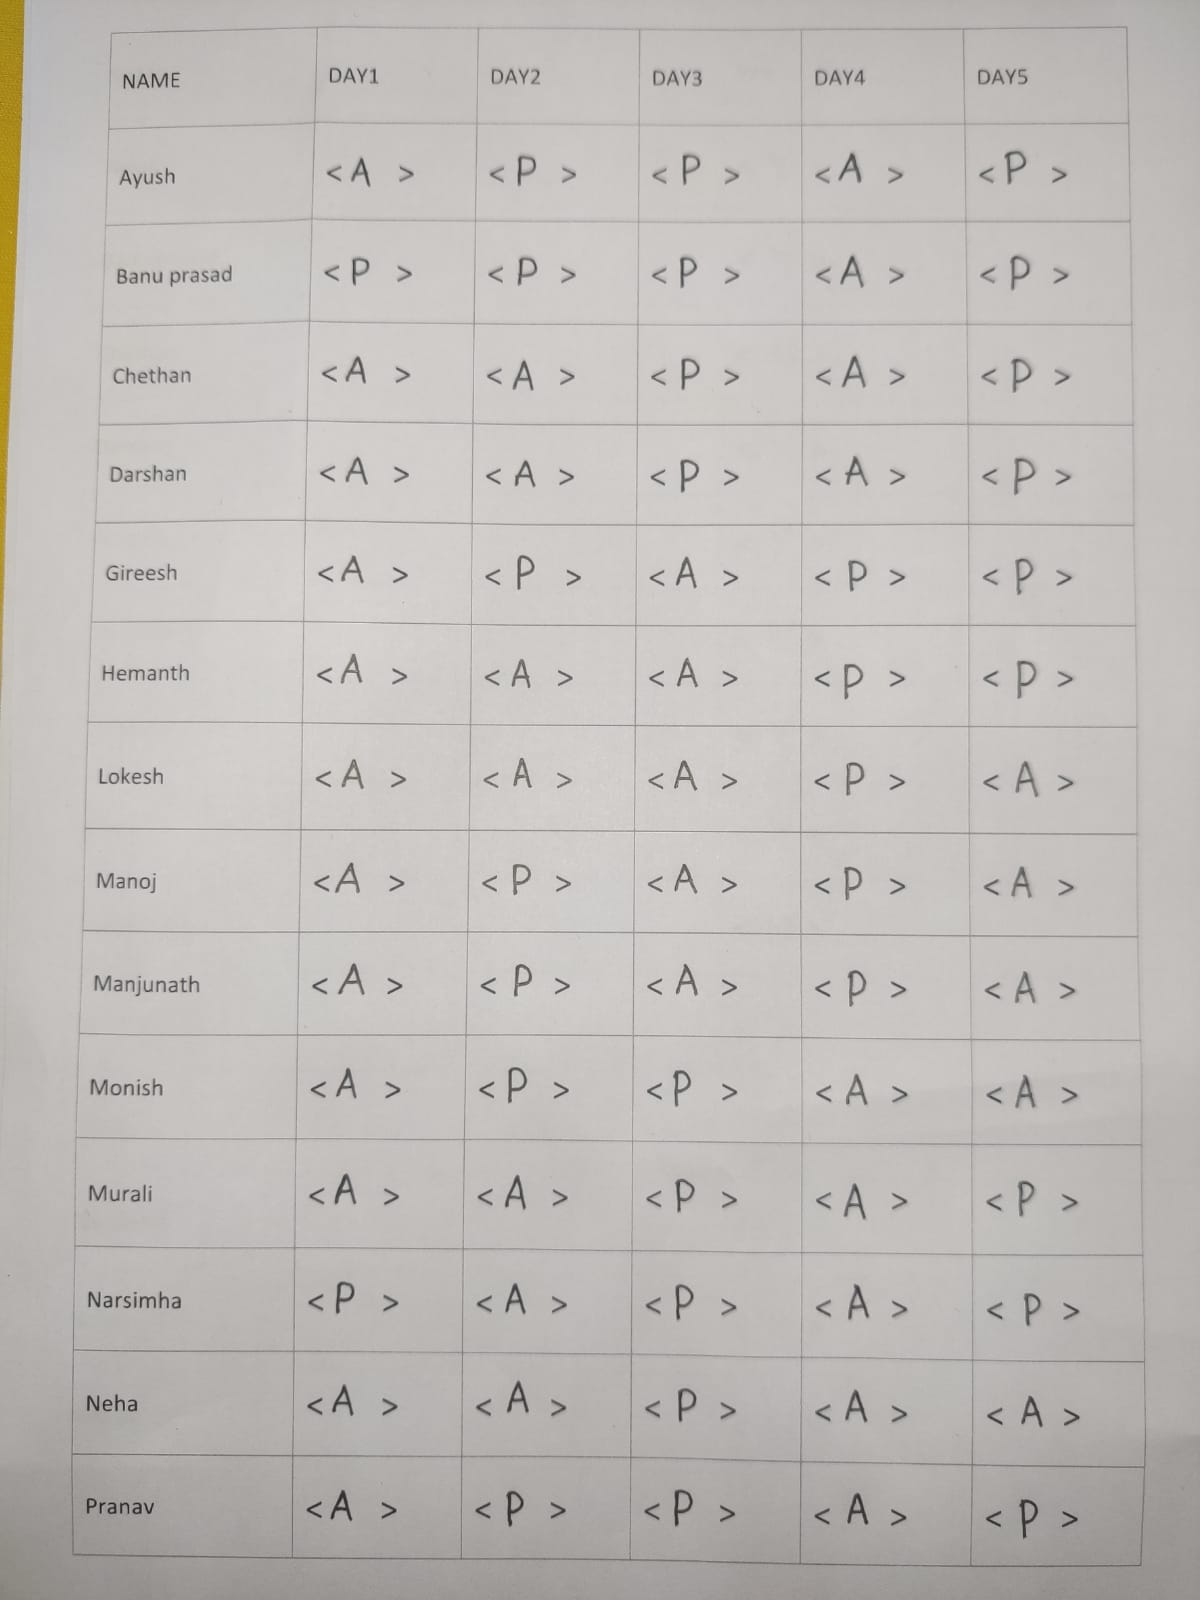 NAME DAY1 DAY2 DAY3 DAY4 DAY5
Ayush < A > < P > < P > < A > < P >
Banu prasad < P > < P > < P > < A > < P >
Chethan < A > < A > < P > < A > < P >
Darshan < A > < A > < P > < A > < P >
Gireesh < A > < P > < A > < P > < P >
Hemanth < A > < A > < A > < P > < P >
Lokesh < A > < A > < A > < P > < A >
Manoj < A > < P > < A > < P > < A >
Manjunath < A > < P > < A > < P > < A >
Monish < A > < P > < P > < A > < A >
Murali < A > < A > < P > < A > < P >
Narsimha < P > < A > < P > < A > < P >
Neha < A > < A > < P > < A > < A >
Pranav < A > < P > < P > < A > < P >